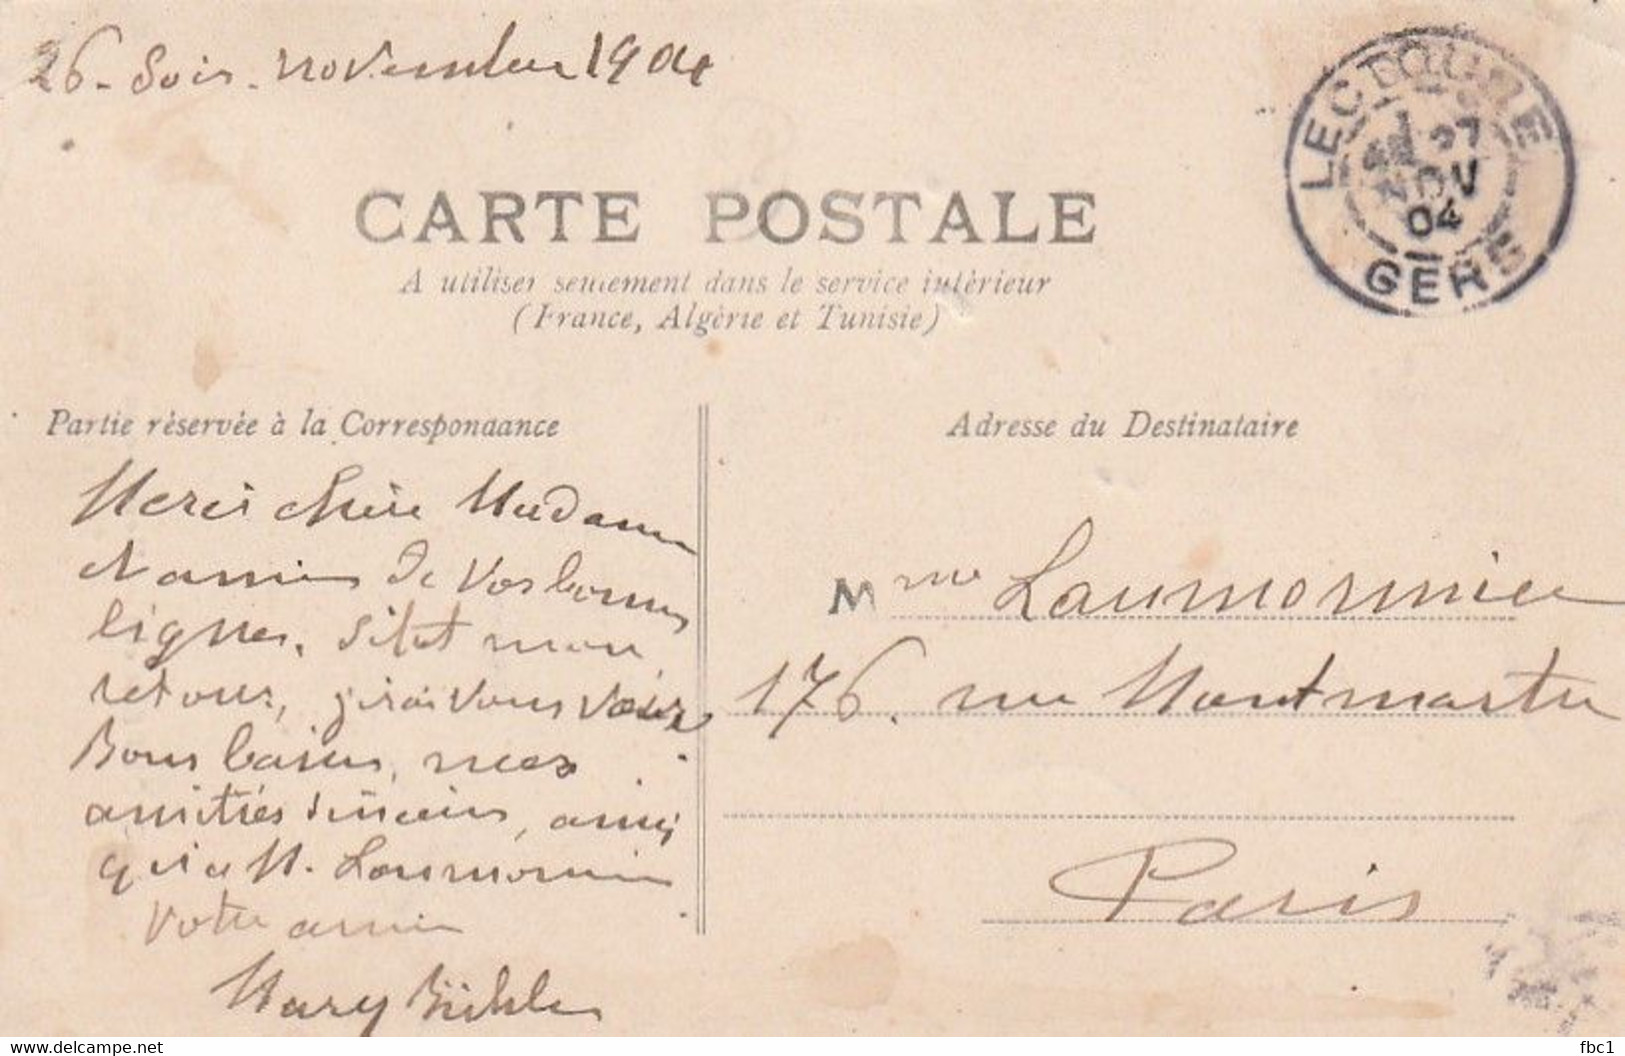 26. Soir. novembre 1904
LECTOURE
27
NOV
04
GERS
CARTE POSTALE
A utiliser seulement dans le service intérieur
(France, Algérie et Tunisie)
Partie réservée à la Correspondance
Adresse du Destinataire
Merci chère Madame
et amie de vos bonnes
lignes. Sitôt mon
retour, j'irai vous voir
Bons baisers, mes
amitiés sincères, ainsi
qu'à M. Laumonnier
Votre amie
Mary Bühler
Mme Laumonnier
176. rue Montmartre
Paris
fbc1